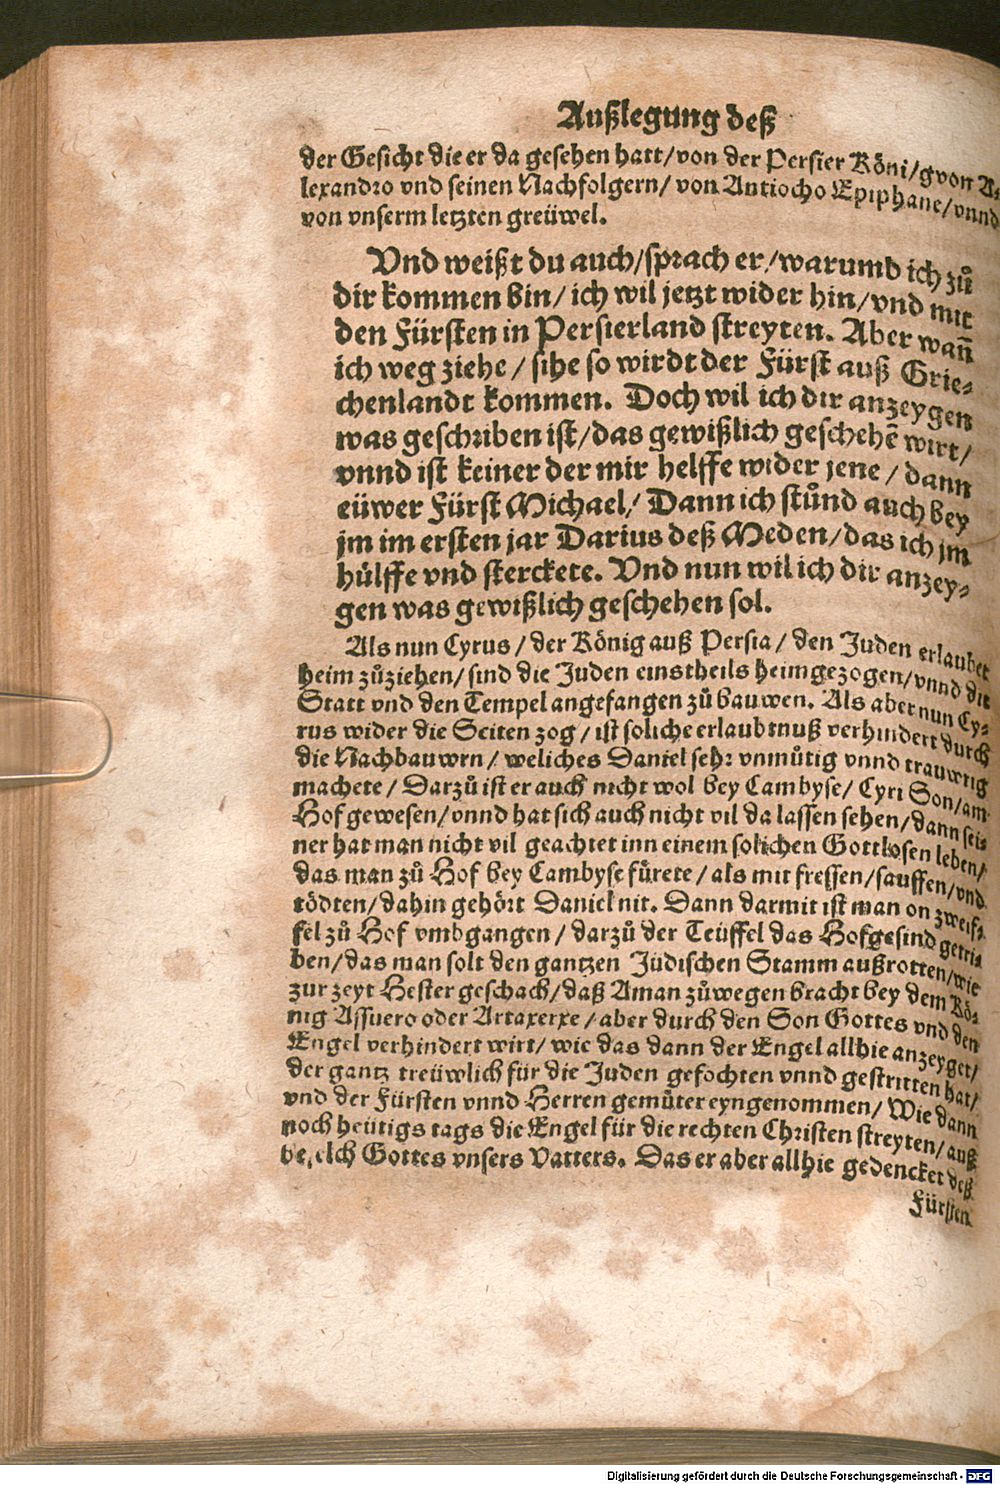 Außlegung deß
der Gesicht die er da gesehen hatt/von der Persier Köni/gvon A-
lexandro vnd seinen Nachfolgern/ von Antiocho Epiphane/vnnd
von vnserm letzten greüwel.
Vnd weißt du auch/sprach er/warumb ich zů
dir kommen bin/ ich wil jetzt wider hin/vnd mit
den Fürsten in Persierland streyten. Aber wañ
ich weg ziehe / sihe so wirdt der Fürst auß Grie-
chenlandt kommen. Doch wil ich dir anzeygen
was geschriben ist/das gewißlich geschehẽ wirt/
vnnd ist keiner der mir helffe wider jene / dann
eüwer Fürst Michael/ Dann ich stůnd auch bey
jm im ersten jar Darius deß Meden/das ich jm
hülffe vnd sterckete. Vnd nun wil ich dir anzey-
gen was gewißlich geschehen sol.
Als nun Cyrus / der König auß Persia / den Juden erlaubet
heim zůziehen/ sind die Juden einstheils heimgezogen/vnnd die
Statt vnd den Tempel angefangen zů bauwen. Als aber nun Cy-
rus wider die Sciten zog / ist soliche erlaubtnuß verhindert durch
die Nachbauwrn / weliches Daniel sehr vnmůtig vnnd trauwrig
machete / Darzů ist er auch nicht wol bey Cambyse/ Cyri Son/am
Hof gewesen/vnnd hat sich auch nicht vil da lassen sehen/dann sei-
ner hat man nicht vil geachtet inn einem solichen Gottlosen leben/
das man zů Hof bey Cambyse fůrete / als mit fressen/sauffen/vnd
tödten/dahin gehört Daniel nit. Dann darmit ist man on zweif-
fel zů Hof vmbgangen / darzů der Teüffel das Hofgesind getri-
ben/das man solt den gantzen Jüdischen Stamm außrotten/wie
zur zeyt Hester geschach/daß Aman zůwegen bracht bey dem Kö-
nig Assuero oder Artaxerxe / aber durch den Son Gottes vnd den
Engel verhindert wirt/ wie das dann der Engel allhie anzeyget/
der gantz treüwlich für die Juden gefochten vnnd gestritten hat/
vnd der Fürsten vnnd Herren gemůter eyngenommen/ Wie dann
noch heütigs tags die Engel für die rechten Christen streyten/ auß
befelch Gottes vnsers Vatters. Das er aber allhie gedencket deß
Fürsten
Digitalisierung gefördert durch die Deutsche Forschungsgemeinschaft - DFG